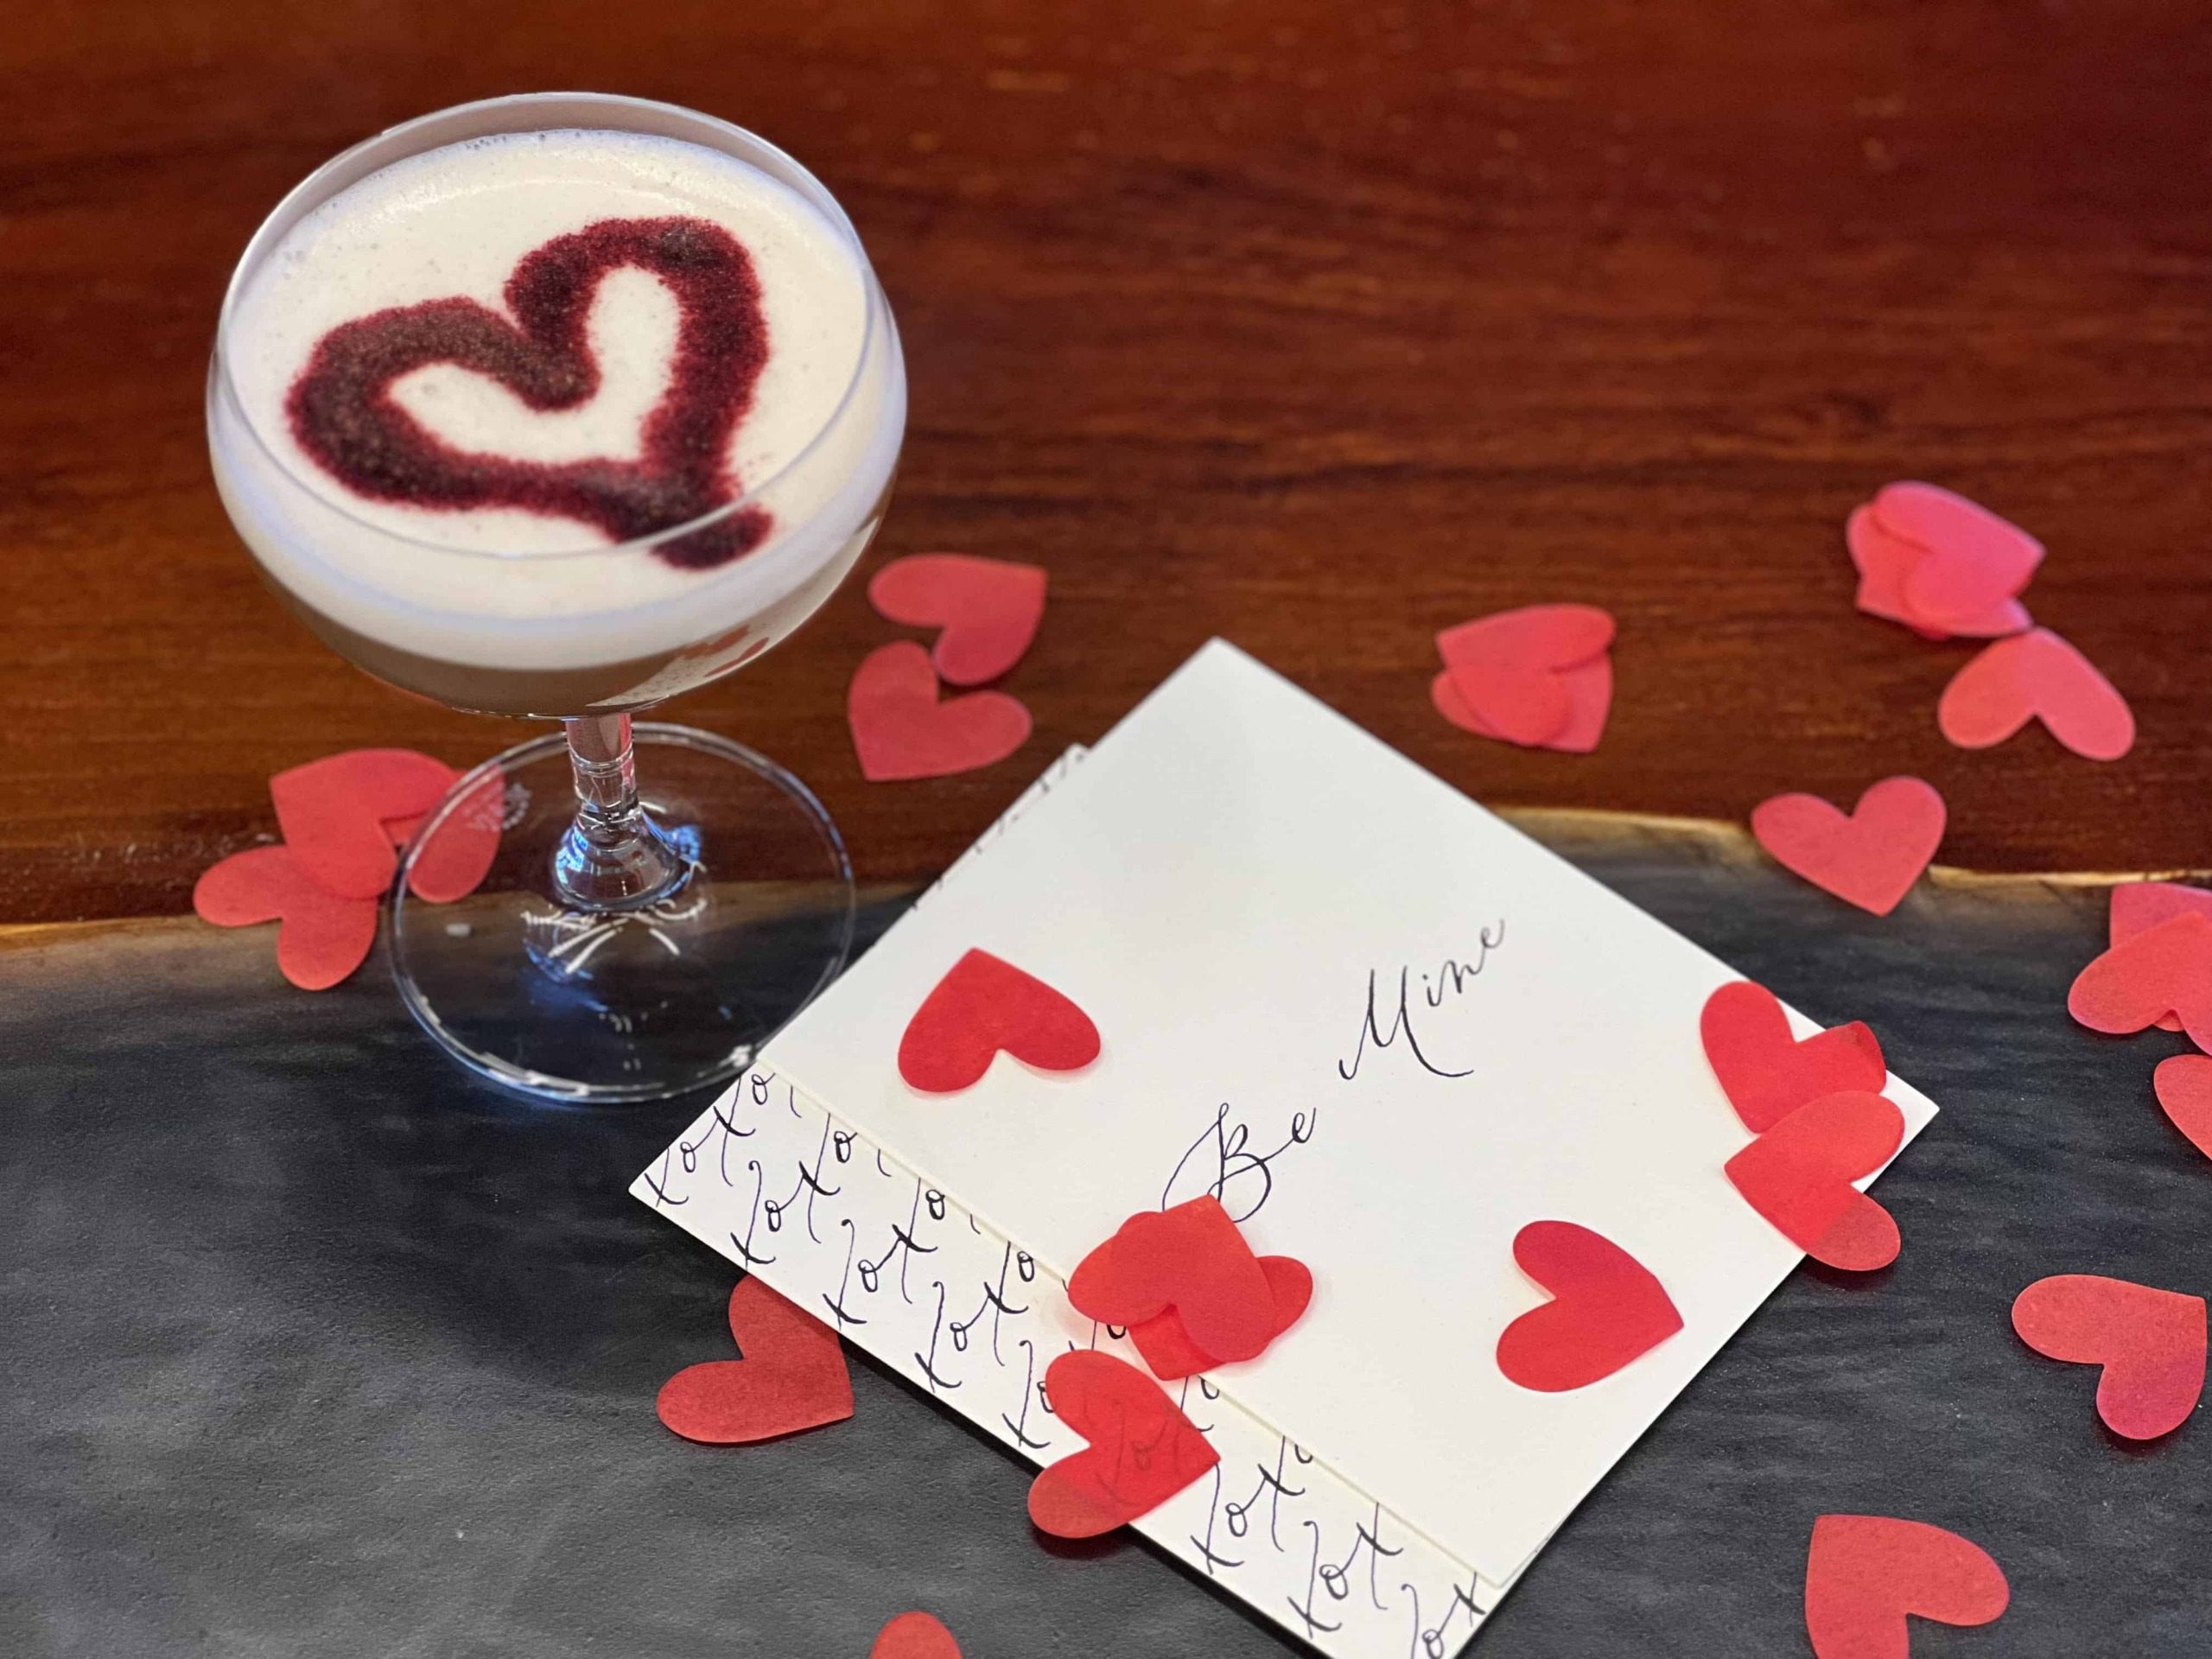 Be Mine
xoxo
xoxo
xoxo
xoxo
xo
xoxo
xox
xox